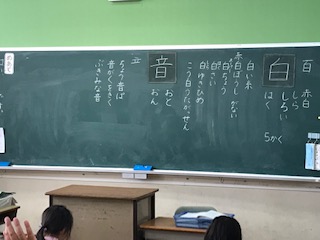 百
赤白
白
しら
しろい
はく
5かく
白い糸
赤白ぼうし
白ちょう
白さい
白ゆきひめ
こう白うたがっせん
音
おと
おん
立
ちょう音ぱ
音がくをきく
ぶきみな音